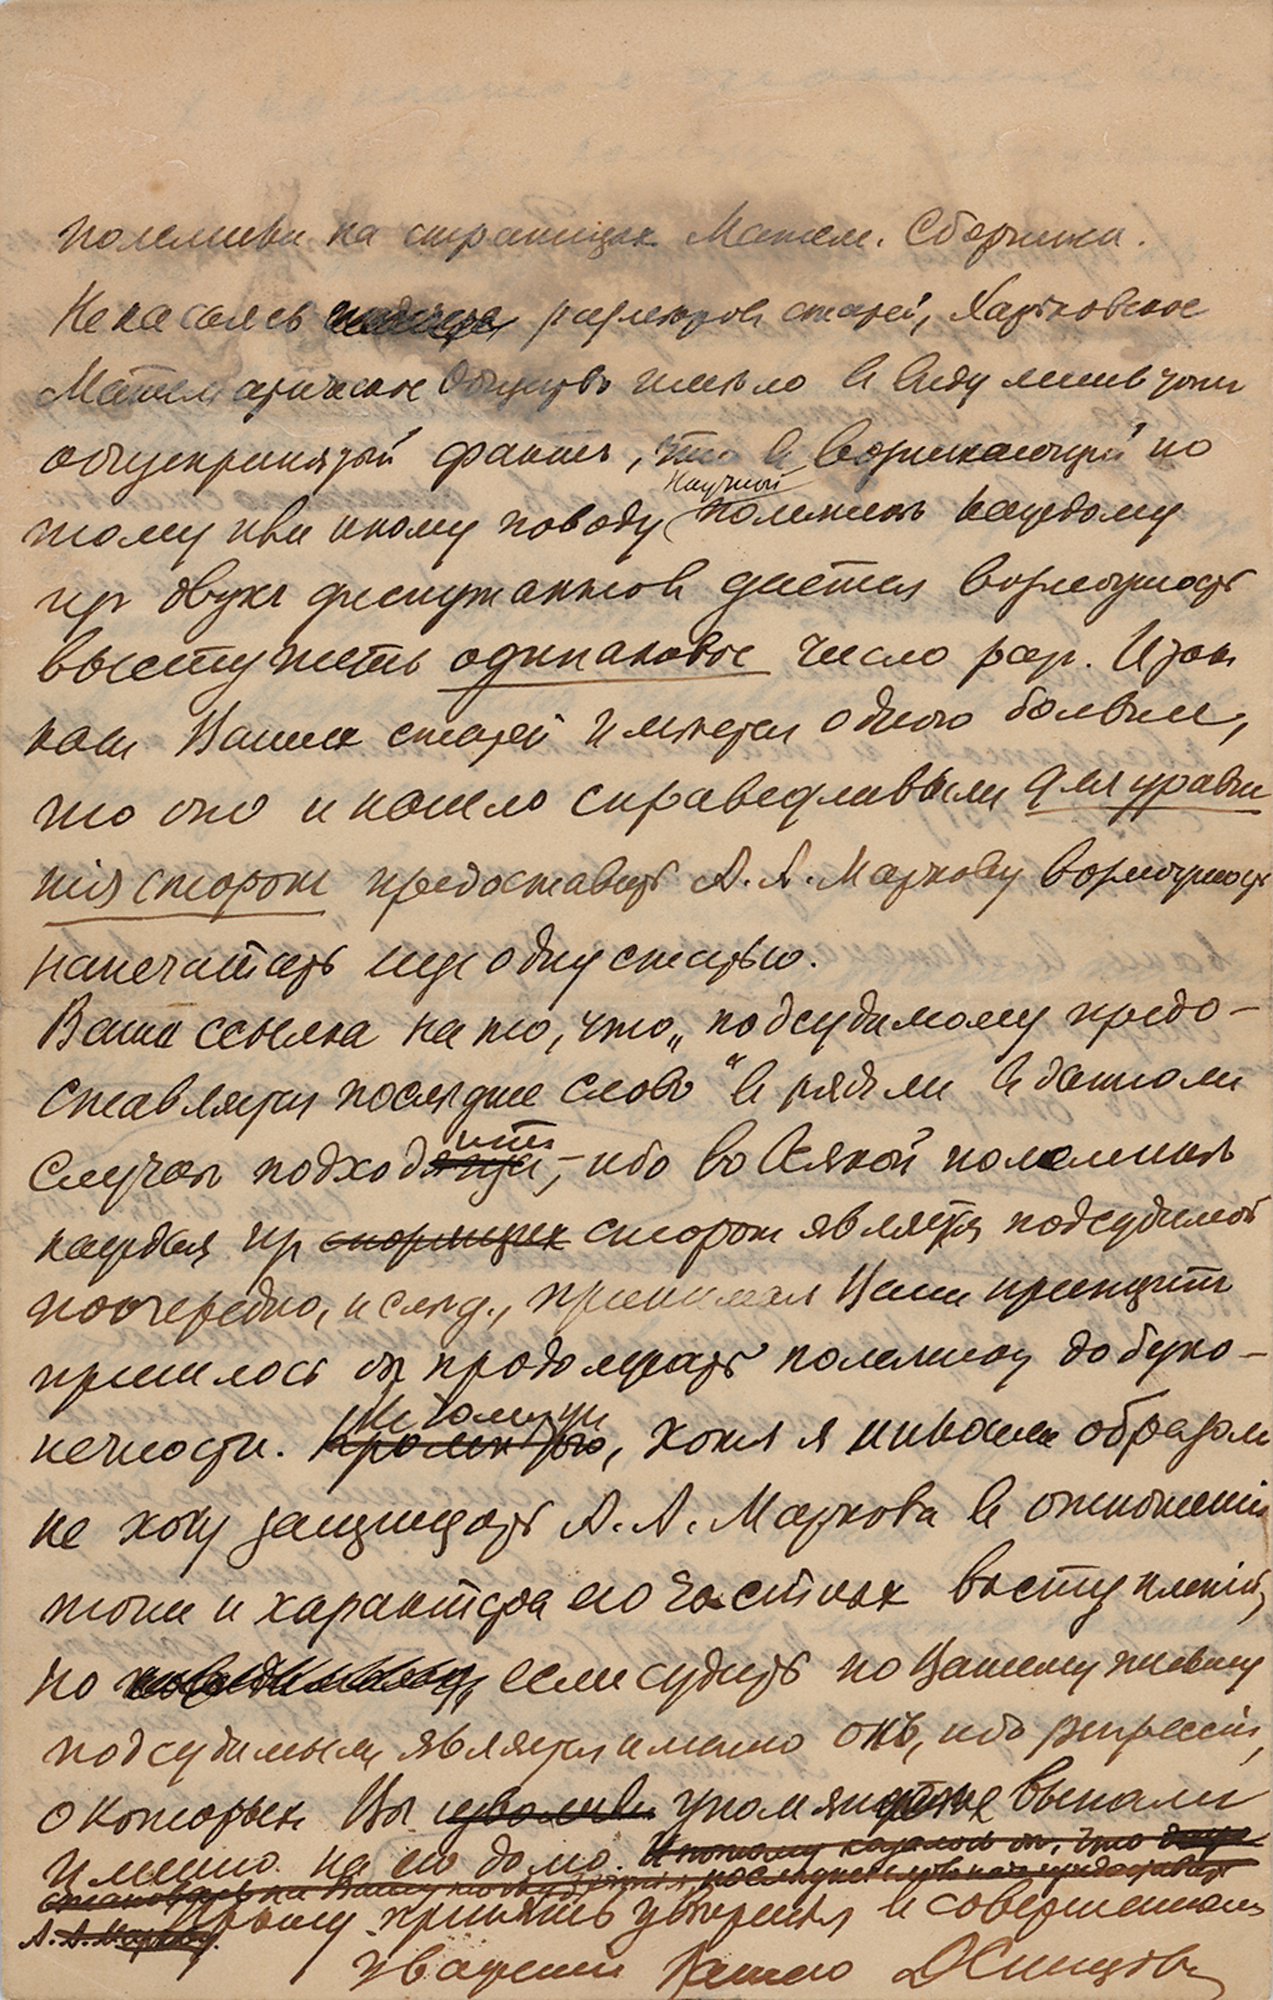 полемики на страницах Матем. Сборника.
Не касаясь разборов статей, Харьковское
Математическое Общество имело в виду лишь тот
общепринятый факт, что в возникающей по
тому или иному поводу научной полемике каждому
из двух диспутантов дается возможность
выступать одинаковое число раз. И так
как Ваших статей имеется одною более,
то оно и нашло справедливым для уравне
нія сторон предоставить А. А. Маркову возможность
напечатать еще одну статью.
Ваша ссылка на то, что „подсудимому предо-
ставляется последнее слово" врядъ ли в данном
случае подходитъ, – ибо во всякой полемике
каждая из спорящих сторон является подсудимой
поочередно, и след., принимая Ваш принципъ
пришлось бы продолжать полемику до беско-
нечности. Не тому же, хотя я никоим образом
не хочу защищать А. А. Маркова в отношеніи
тона и характера его частных выступленій,
но если судить по Вашему письму
подсудимым является именно онъ, ибо репрессіи,
о которых Вы изволили упомянуть выпали
именно на его долю. И потому казалось бы, что
последнее слово предоставить
А. А. Маркову.
Прошу принять уверенія в совершенном
уваженіи Вашего ДСинцовъ